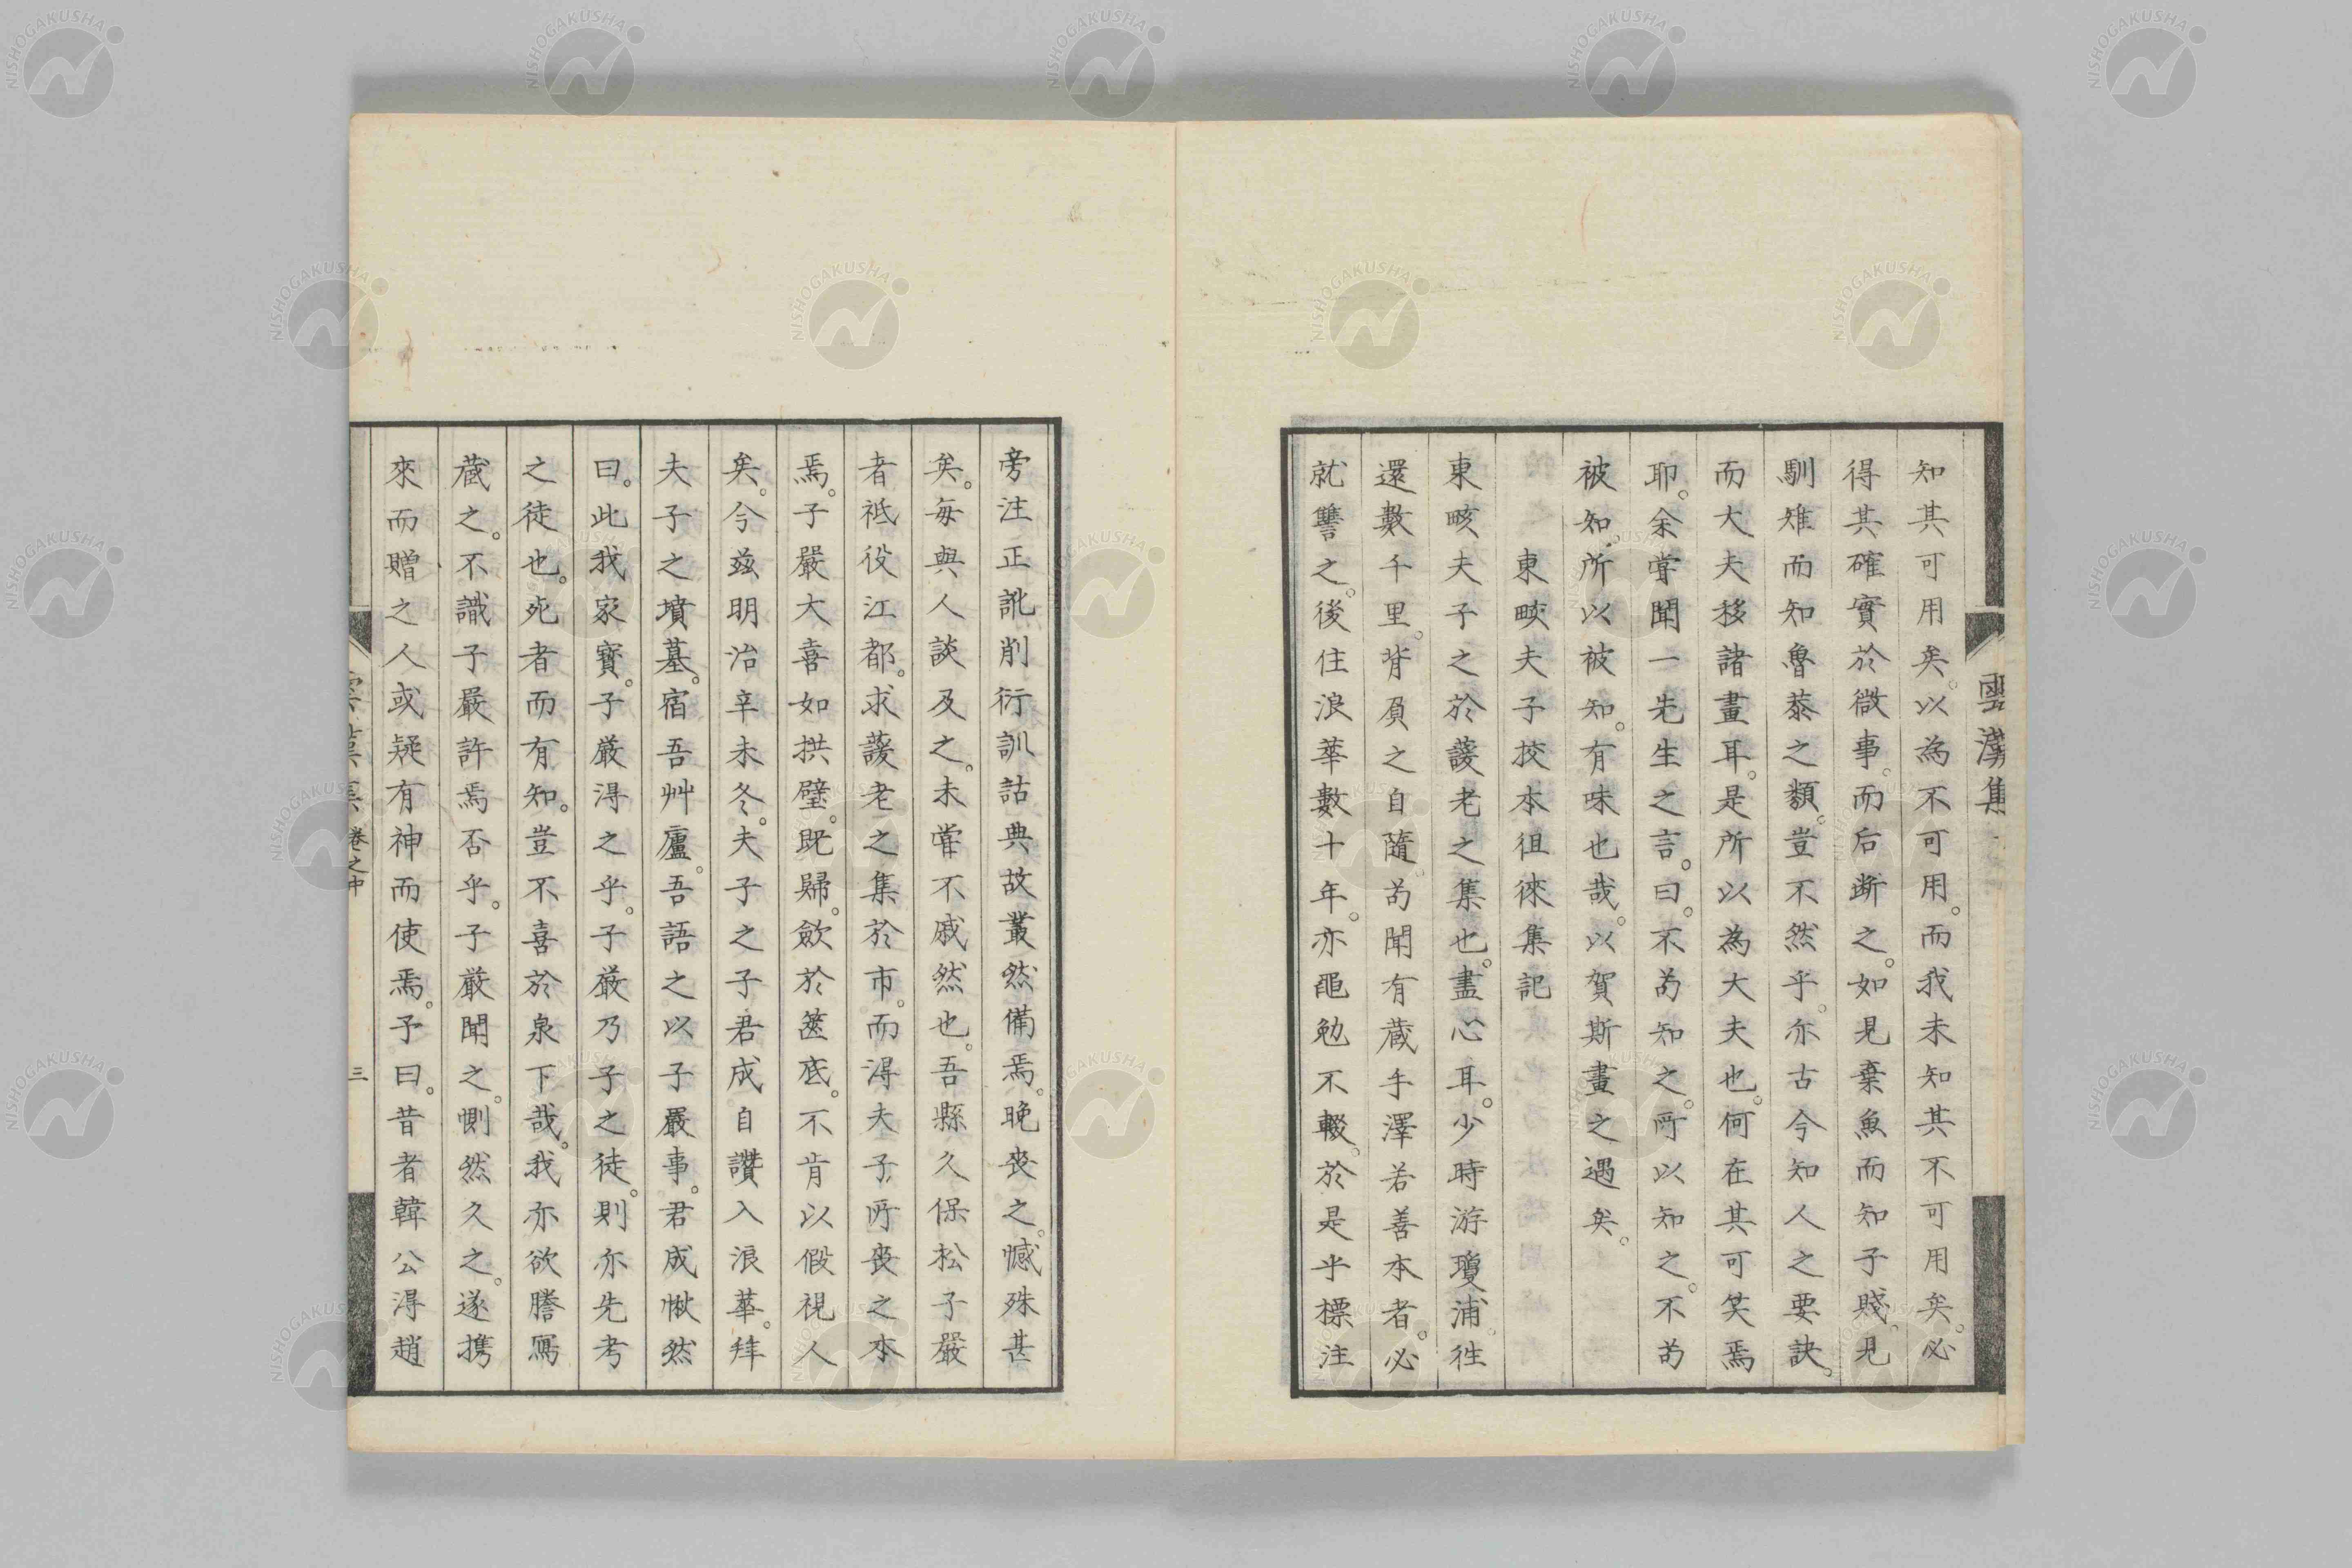 雲漢集
知其可用矣。以為不可用。而我未知其不可用矣。必
得其確實於微事。而后断之。如見棄魚而知子賤。見
馴雉而知魯恭之類。豈不然乎。亦古今知人之要訣。
而大夫移諸畫耳。是所以為大夫也。何在其可笑焉
耶。余甞聞一先生之言。曰。不苟知之。所以知之。不苟
被知。所以被知。有味也哉。以賀斯畫之遇矣。
東畡夫子挍本徂徠集記
東畡夫子之於蘐老之集也。盡心耳。少時游瓊浦。徃
還數千里。背負之自隨。苟聞有蔵手澤若善本者。必
就讐之。後住浪華數十年。亦黽勉不輟。於是乎標注
旁注正訛削衍訓詁典故叢然備焉。晚丧之。憾殊甚
矣。每與人談及之。未甞不戚然也。吾縣久保松子嚴
者祗役江都。求蘐老之集於市。而淂夫子所丧之本
焉。子嚴大喜如拱璧。既歸。歛於篋底。不肯以假視人
矣。今兹明治辛未冬。夫子之子君成自讚入浪華。拝
夫子之墳墓。宿吾艸廬。吾語之以子嚴事。君成愀然
曰。此我家寶。子嚴淂之乎。子嚴乃子之徒。則亦先考
之徒也。死者而有知。豈不喜於泉下哉。我亦欲謄寫
蔵之。不識子嚴許焉否乎。子嚴聞之。惻然久之。遂携
來而贈之人或疑有神而使焉。予曰。昔者韓公淂趙
卷之中
三